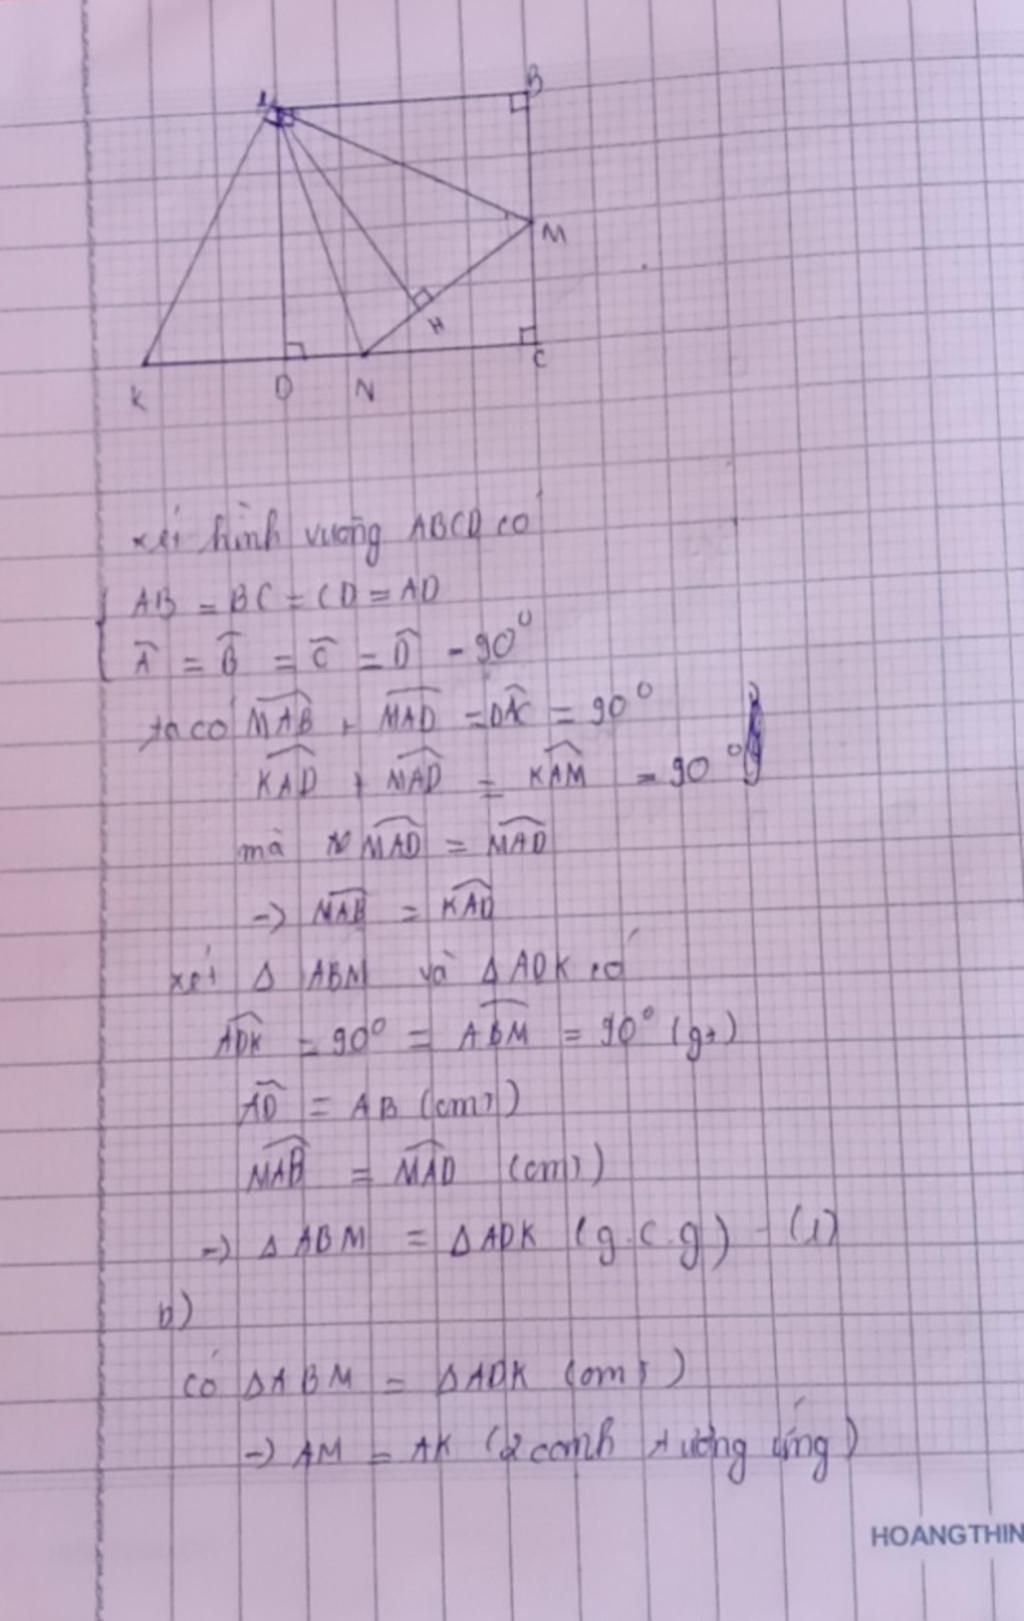 A
B
M
H
C
K
D
N
xét hình vuông ABCD có
AB = BC = CD = AD
Â = B̂ = Ĉ = D̂ = 90°
ta có MAB + MAD = DAC = 90°
KAD + MAD = KAM = 90°
mà MAD = MAD
=> MAB = KAD
xét Δ ABM và Δ ADK có
ADK = 90° = ABM = 90° (gt)
AD = AB (cmt)
MAB = MAD (cmt)
=> Δ ABM = Δ ADK (g.c.g) - (1)
b)
có Δ ABM = Δ ADK (cmt)
=> AM = AK (2 cạnh tương ứng)
HOANGTHIN